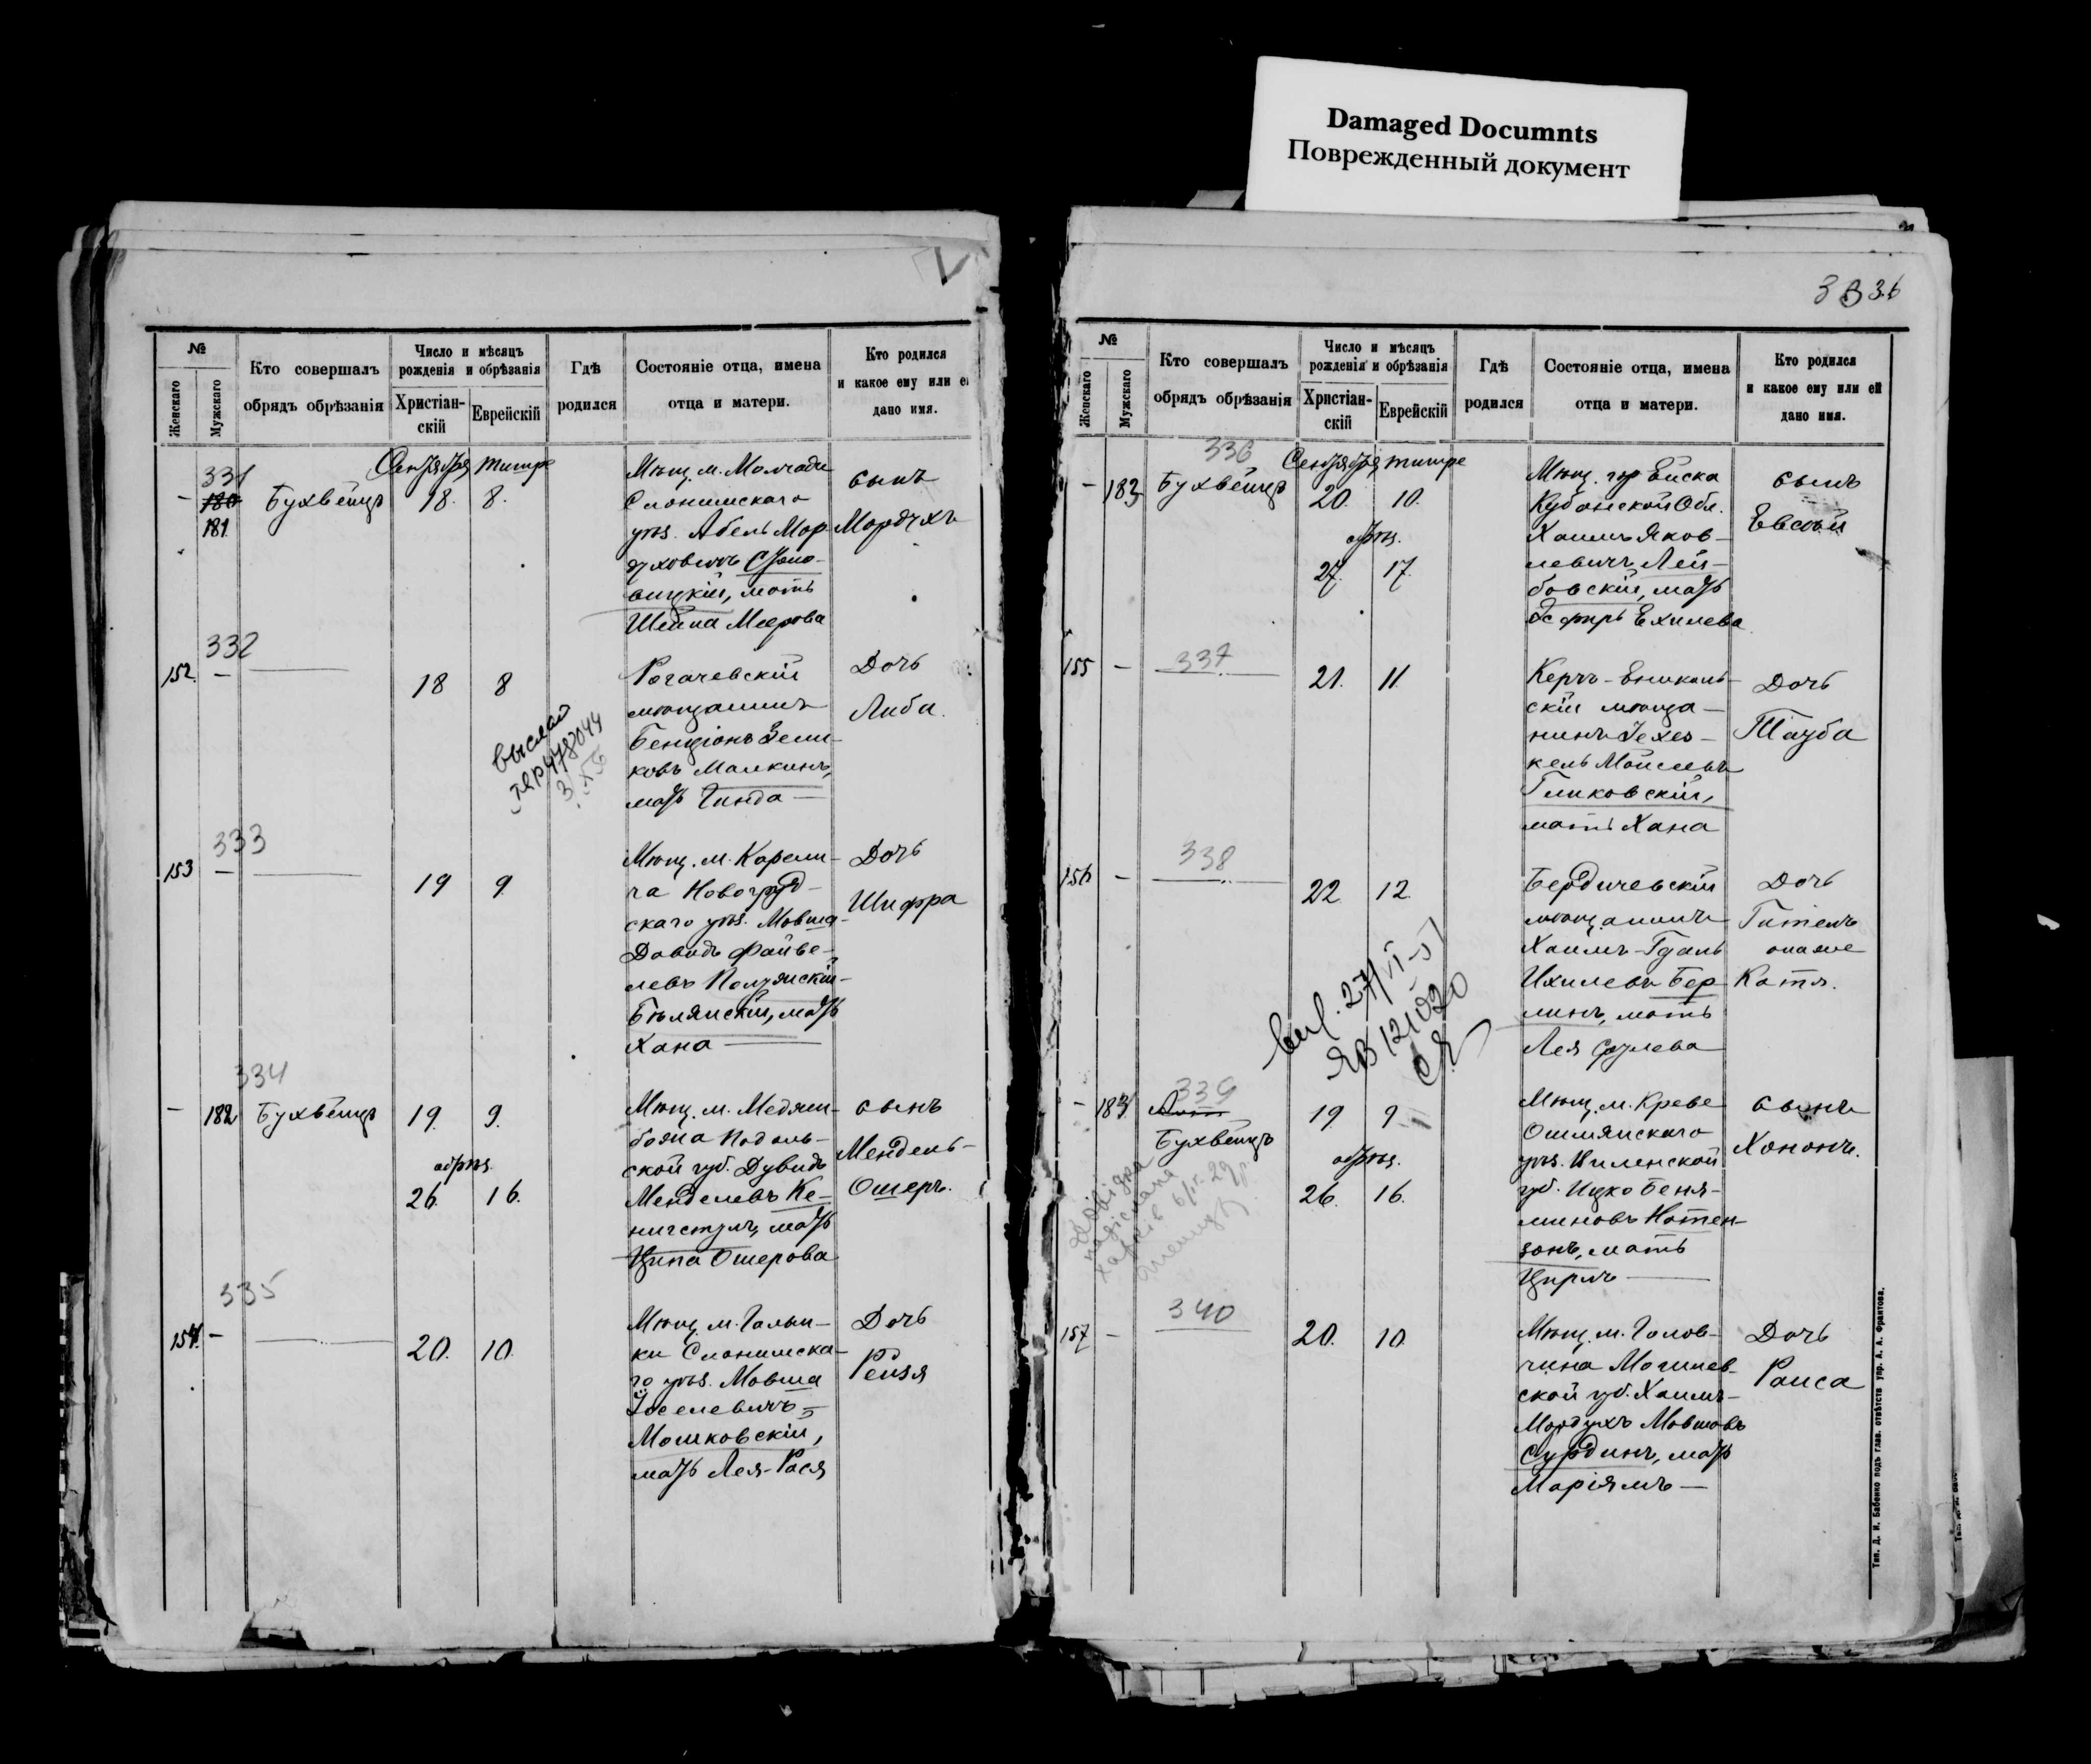 Damaged Documnts
Поврежденный документ
№
Женскаго
Мужскаго
Кто совершалъ
обрядъ обрѣзанія
Число и мѣсяцъ
рожденія и обрѣзанія
Христіан-
скій
Еврейскій
Гдѣ
родился
Состояніе отца, имена
отца и матери.
Кто родился
и какое ему или е
дано имя.
331
Сентября тишре
– 180 Бухвейцъ 18. 8.
181
Мѣщ. м. Молчади
Слонимскаго
уѣз. Абель Мор-
духовичъ
вицкій, мать
Шейна Меерова
сынъ
Мордухъ
332
152. – 18 8
Рогачевскій
мѣщанинъ
Бенціонъ Зели-
ковъ Малкинъ,
мать Гинда
Дочь
Либа.
выслан
333
153 – 19 9
Мѣщ. м. Карели-
ча Новогруд-
скаго уѣз. Мовша-
Давидъ Файве-
левъ Полянскій-
Бѣлянскій, мать
Хана
Дочь
Шифра
334
– 182 Бухвейцъ 19. 9.
обрѣз.
26. 16.
Мѣщ. м. Меджи-
божа Подоль-
ской губ. Дувидъ
Менделевъ Ке-
нигстулъ, мать
Ципа Ошерова
сынъ
Мендель-
Ошеръ.
335
154. – 20. 10.
Мѣщ. м. Голын-
ки Слонимска-
го уѣз. Мовша
Іоселевичъ
Мошковскій,
мать Лея-Рася
Дочь
Рейзя
3 3 36
№
Женскаго
Мужскаго
Кто совершалъ
обрядъ обрѣзанія
Число и мѣсяцъ
рожденія и обрѣзанія
Христіан-
скій
Еврейскій
Гдѣ
родился
Состояніе отца, имена
отца и матери.
Кто родился
и какое ему или ей
дано имя.
336
Сентября тишре
– 183 Бухвейцъ 20. 10.
обрѣз.
27. 17.
Мѣщ. гор Ейска
Кубанской Обл.
Хаимъ Яков-
левичъ Лей-
бовскій, мать
Эсфирь Ехилева
сынъ
Евсей
337
155 – 21. 11.
Керчь-Еникаль-
скій мѣща-
нинъ Іехез-
кель Мойсеевъ
Гликовскій,
мать Хана
Дочь
Тауба
338
156 – 22. 12.
Бердичевскій
мѣщанинъ
Хаимъ-Гдаль
Ихилевъ Бер-
линъ, мать
Лея Срулева
Дочь
Гитель
она же
Катя.
27/VI-57
ЯВ 121020
339
– 184
Бухвейцъ 19 9
обрѣз.
26. 16.
Мѣщ. м. Креве
Ошмянскаго
уѣз. Виленской
губ. Ицко Беня-
миновъ Натен-
зонъ, мать
Цирлъ
сынъ
Хононъ.
340
157 – 20. 10
Мѣщ. м. Голов-
чина Могилев-
ской губ. Хаимъ-
Мордухъ Мовшовъ
Сурдинъ, мать
Маріямъ
Дочь
Раиса
Тип. Д. И. Бабенко подъ глав. отвѣтств упр. А. А. Франтова.